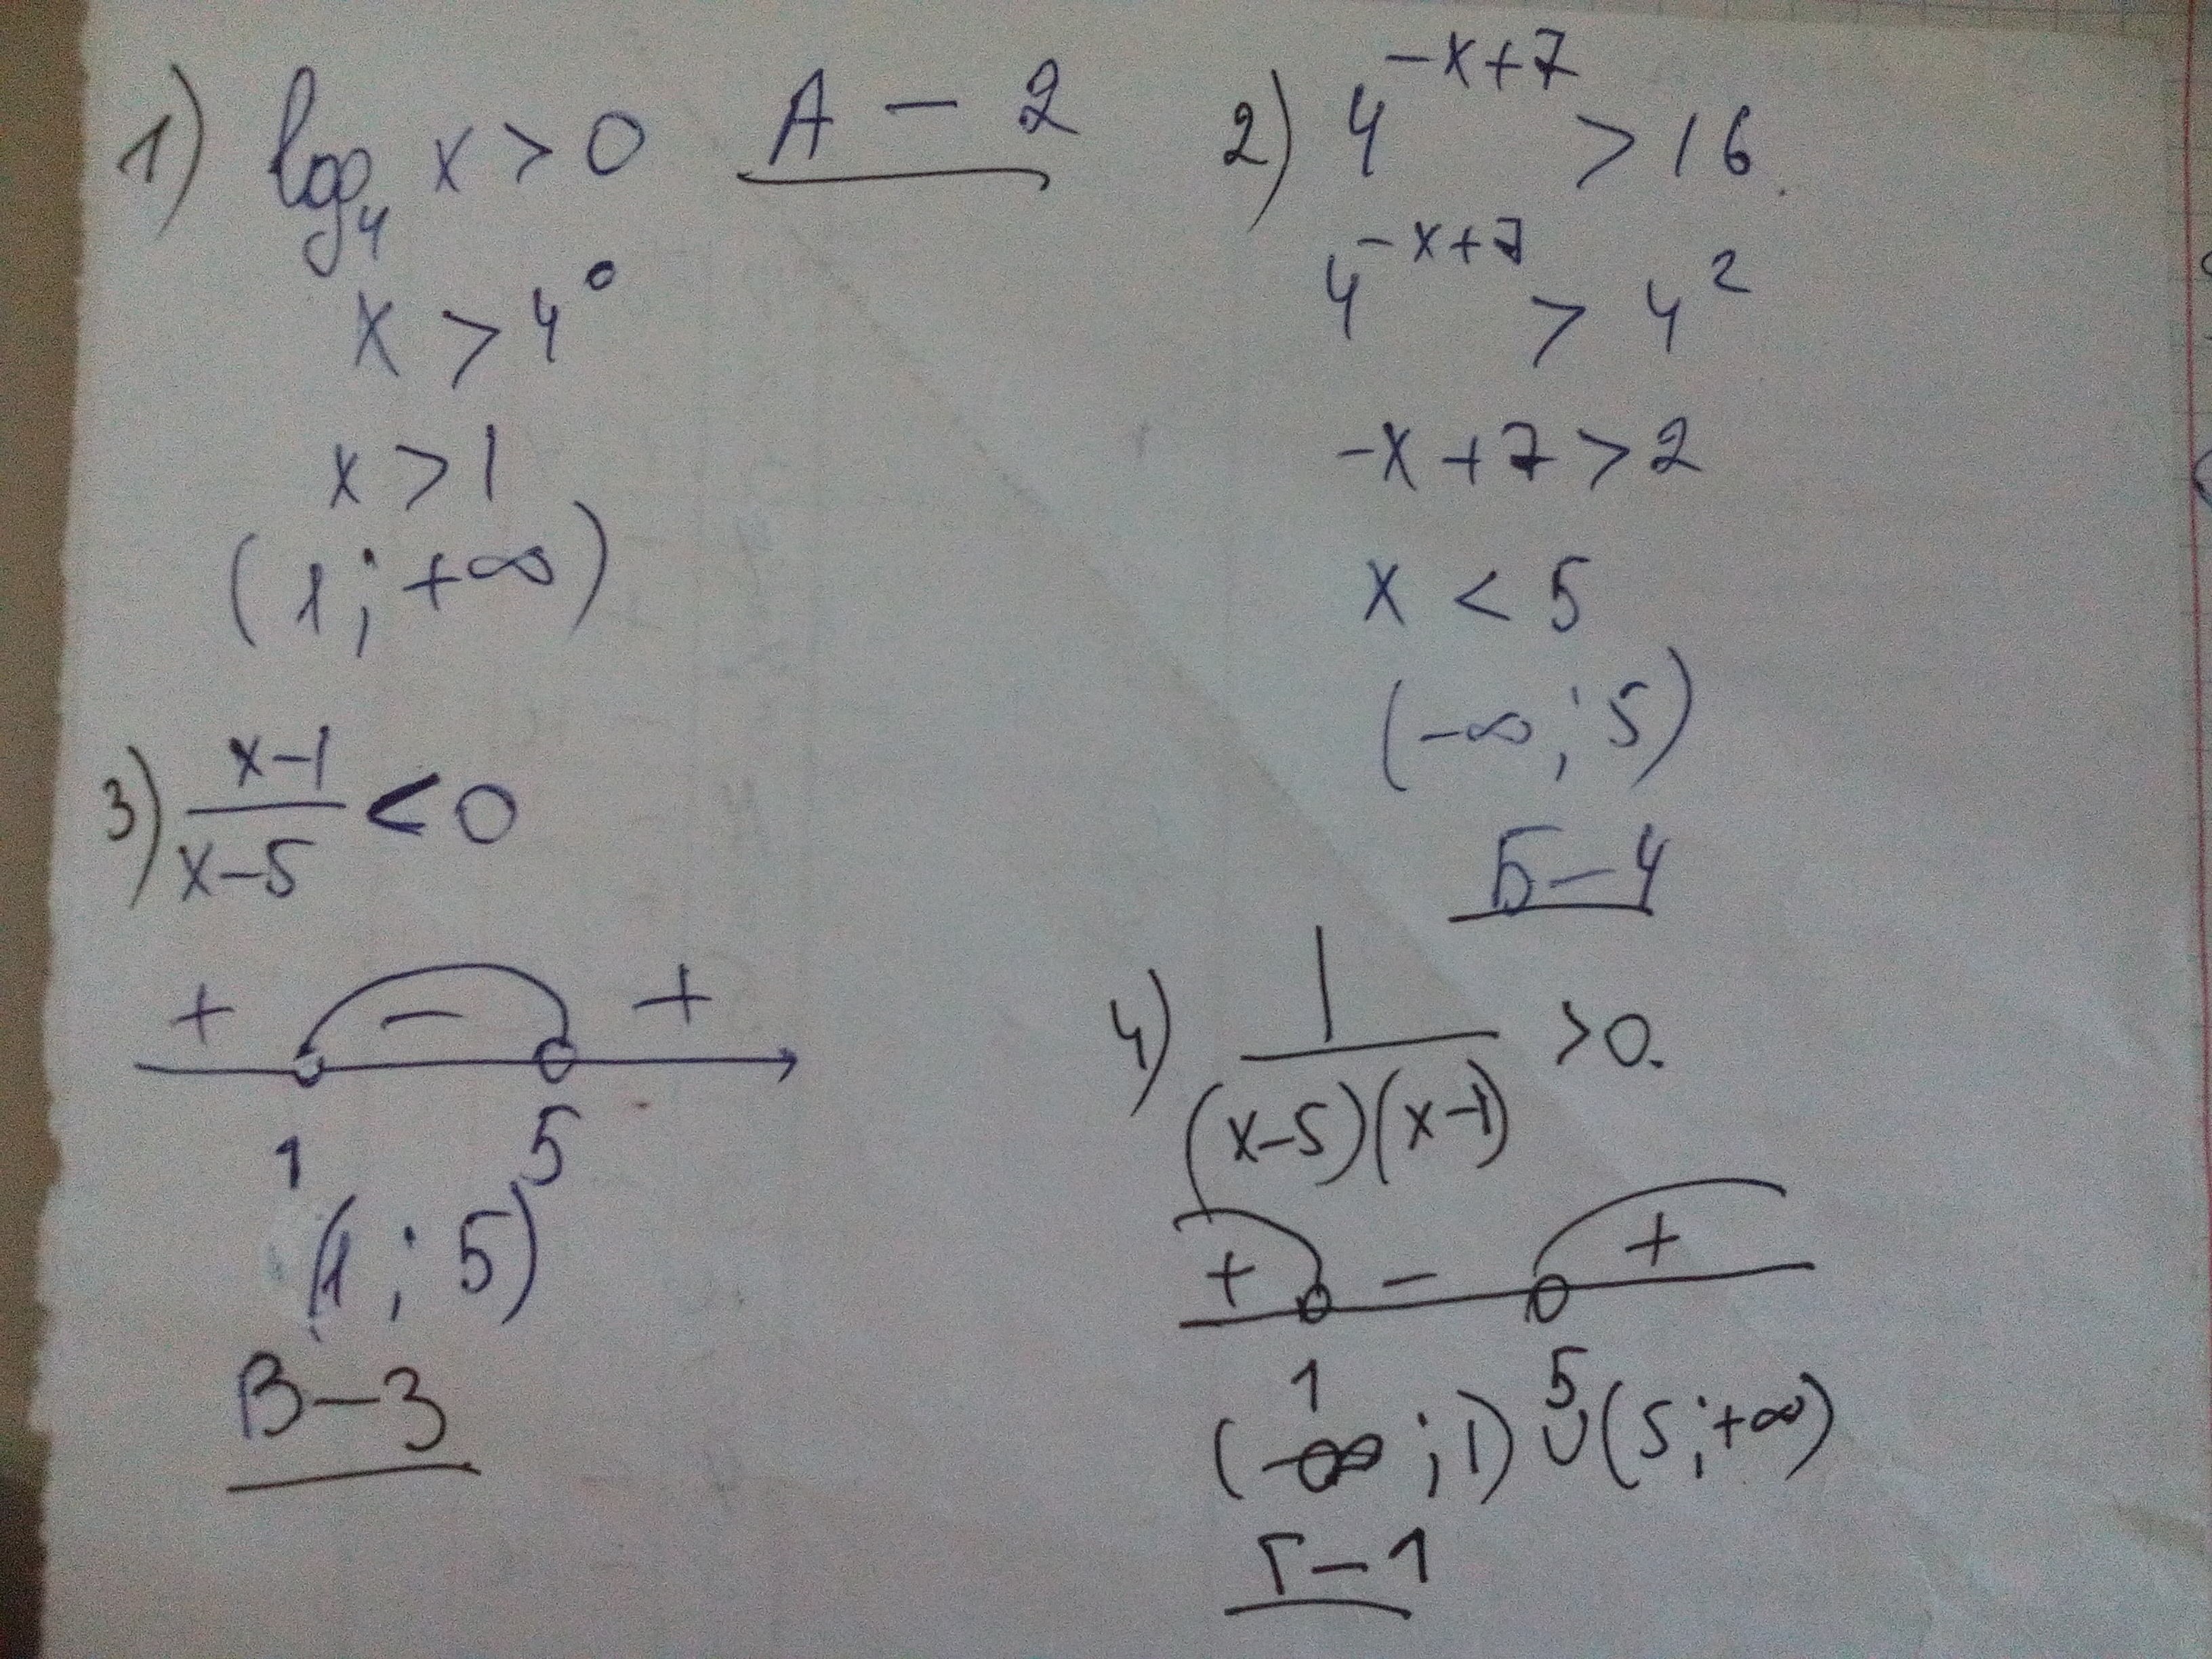 1) log₄ x > 0 А – 2
x > 4⁰
x > 1
(1; +∞)
2) 4^(-x+7) > 16
4^(-x+7) > 4²
-x+7 > 2
x < 5
(-∞; 5)
Б – 4
3) (x-1)/(x-5) < 0
+ – +
1 5
(1; 5)
В – 3
4) 1/((x-5)(x-1)) > 0.
+ – +
1 5
(-∞; 1) ∪ (5; +∞)
Г – 1